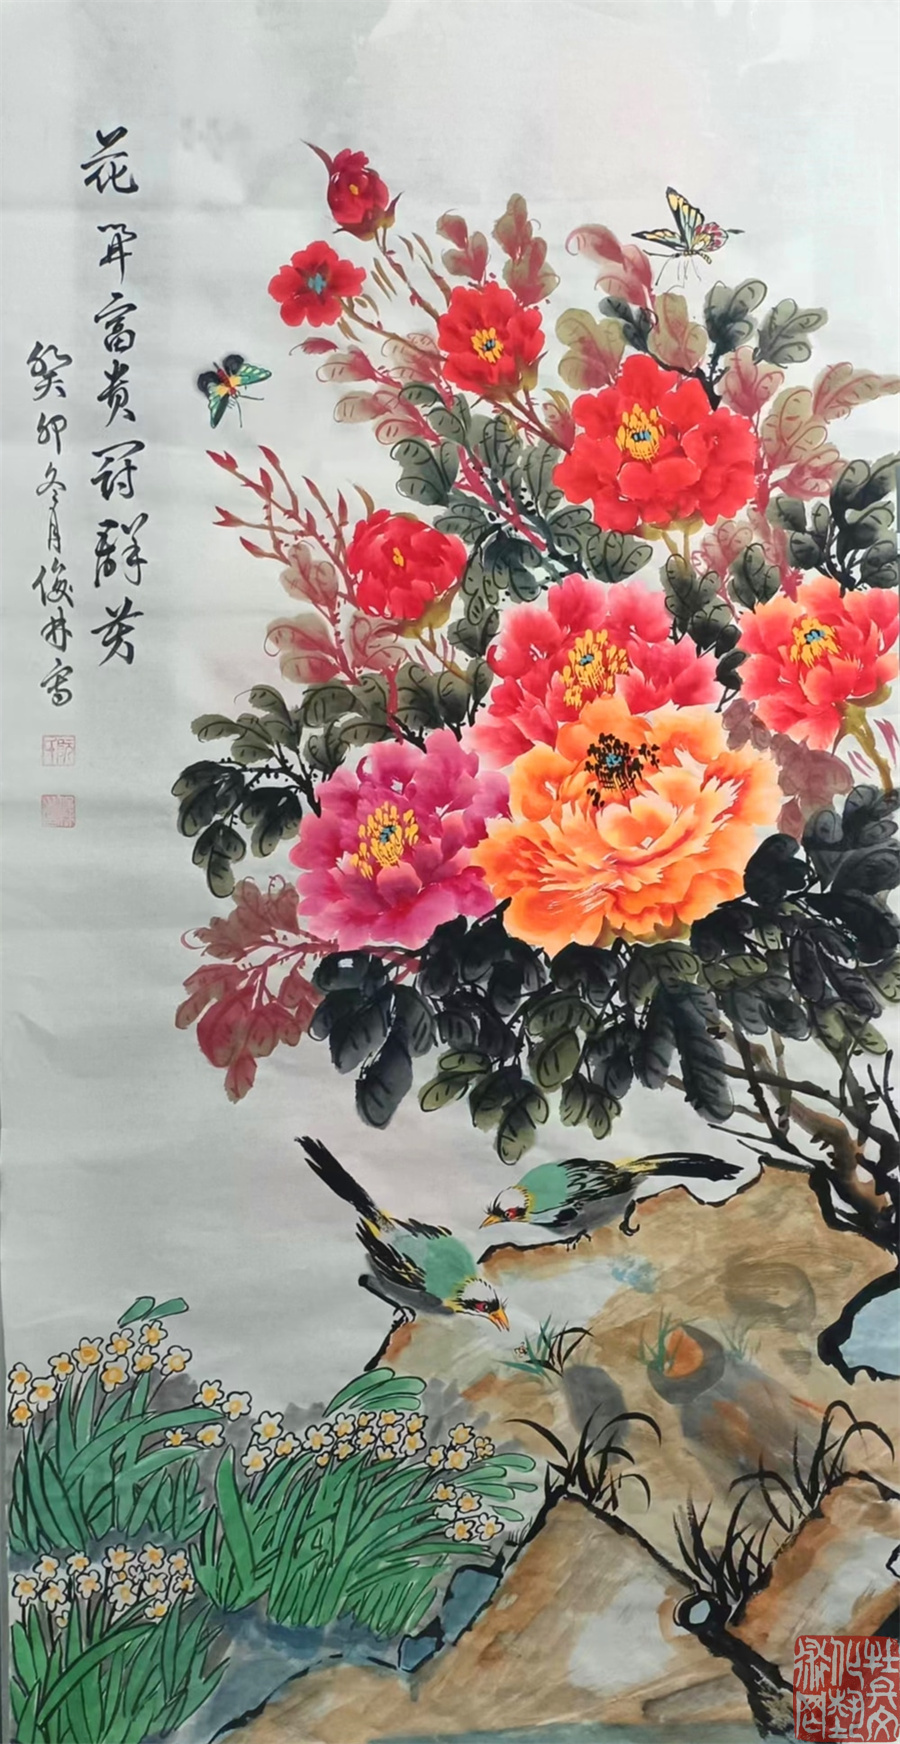 花开富贵冠群芳
癸卯冬月俊林写